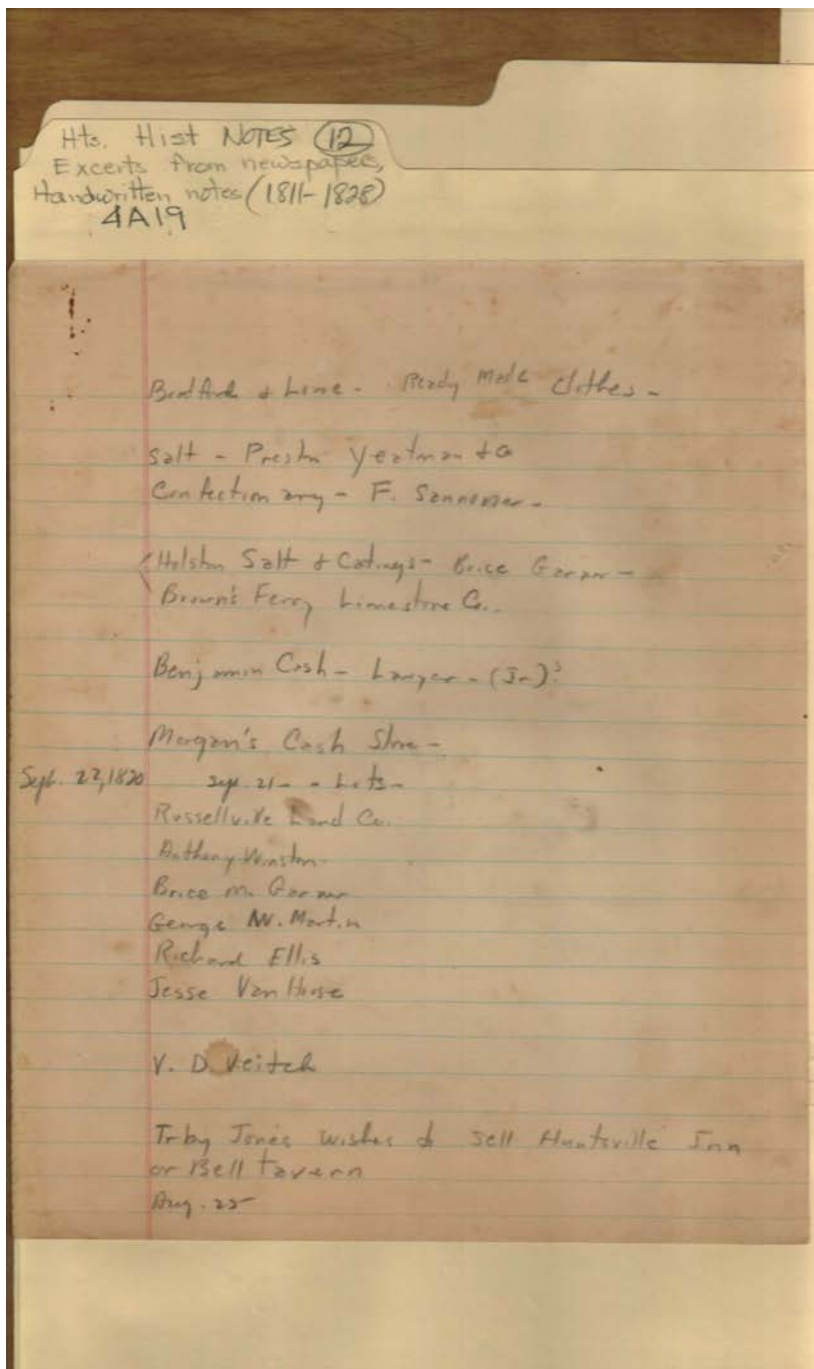 Hts. Hist NOTES (12)
Excerts from newspapers,
Handwritten notes (1811-1828)
4A19
Ready Made Clothes -
Salt - Preston Yeatman & Co
Confectionary - F. Sannoner -
Holston Salt & Catings - Brice Garner -
Brown's Ferry Limestone Co.
Benjamin Cash - Lawyer - (Jr)?
Morgan's Cash Store -
Sept. 22, 1820 Sept. 21 - - Lots -
Russellville Land Co.
Anthony Winston -
Brice M. Garner
George W. Martin
Richard Ellis
Jesse Van Hoose
V. D. Veitch
Jones wishes to sell Huntsville Inn
or Bell Tavern
Aug. 25